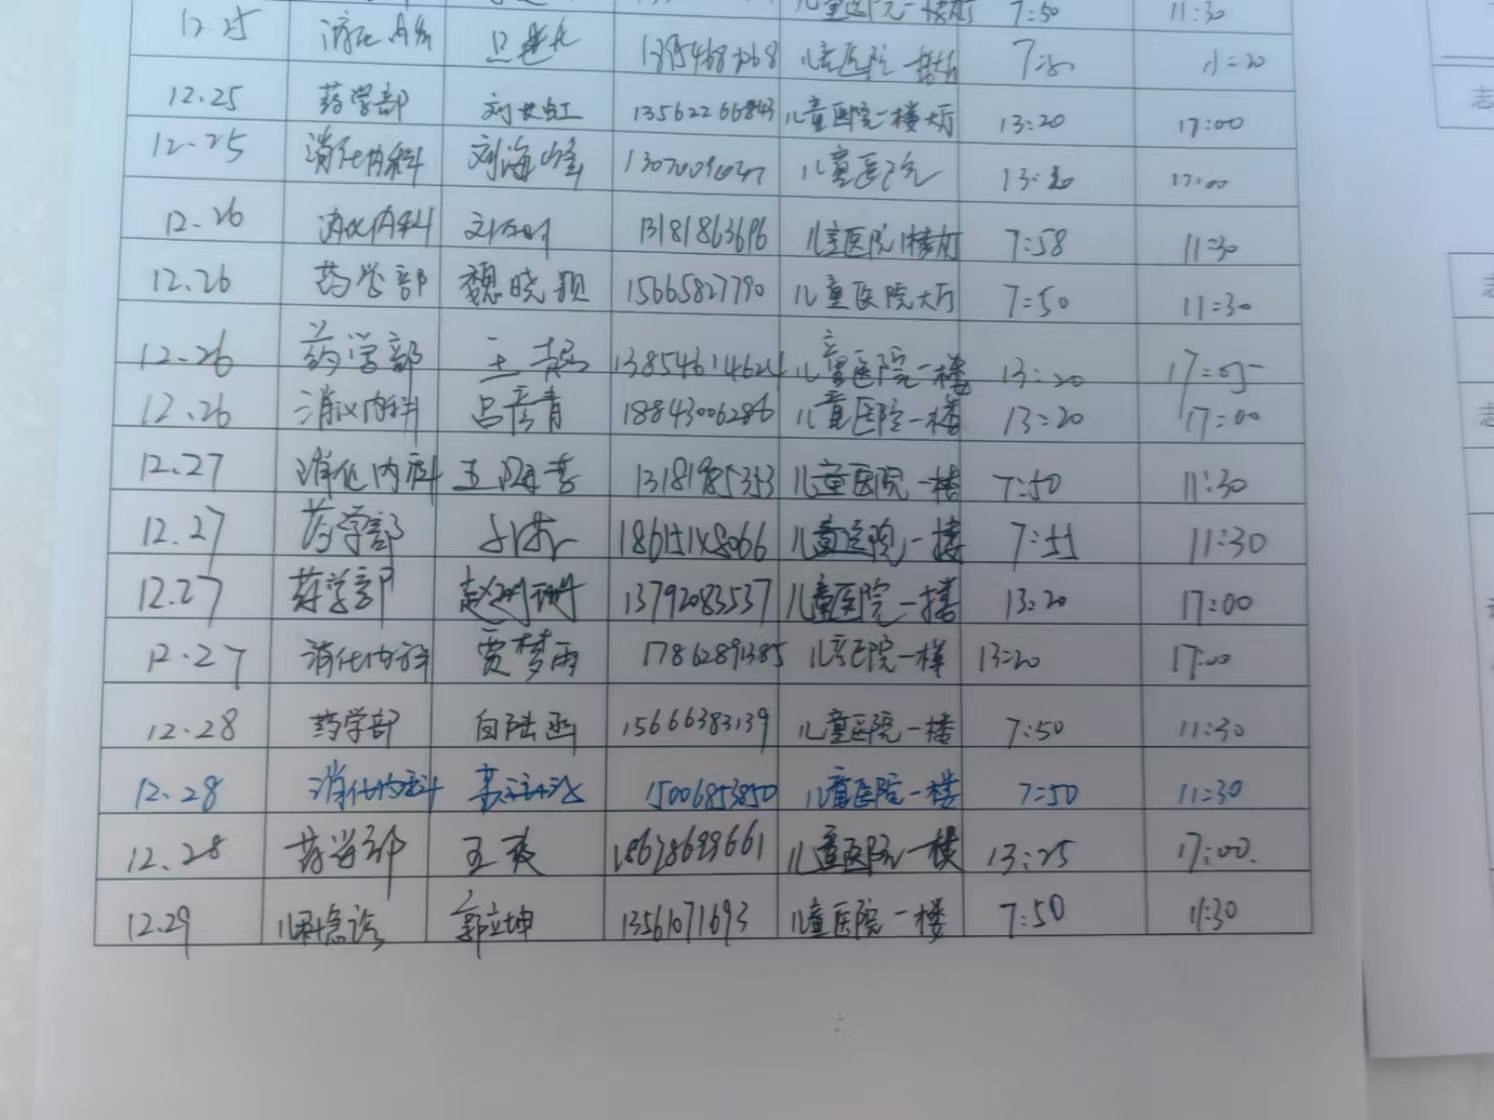 儿童医院一楼大厅 7:50 11:30
12.25 消化内科 儿童医院一楼大厅 11:20
12.25 药学部 刘长虹 13562266843 儿童医院一楼大厅 13:20 17:00
12.25 消化内科 刘海峰 儿童医院 13:20 17:00
12.26 消化内科 13181863696 儿童医院1楼大厅 7:58 11:30
12.26 药学部 魏晓颖 15665827790 儿童医院大厅 7:50 11:30
12.26 药学部 王 13854614624 儿童医院一楼 13:20 17:05
12.26 消化内科 吕彦青 18843006286 儿童医院一楼 13:20 17:00
12.27 消化内科 13181985353 儿童医院一楼 7:50 11:30
12.27 药学部 儿童医院一楼 7:51 11:30
12.27 药学部 赵珊珊 13792083537 儿童医院一楼 13:20 17:00
12.27 消化内科 贾梦雨 17862891385 儿童医院一楼 13:20 17:00
12.28 药学部 白陆函 15666383139 儿童医院一楼 7:50 11:30
12.28 消化内科 15006853850 儿童医院一楼 7:50 11:30
12.28 药学部 王爽 18678699661 儿童医院一楼 13:25 17:00
12.29 儿科急诊 郭立坤 13561071693 儿童医院一楼 7:50 11:30